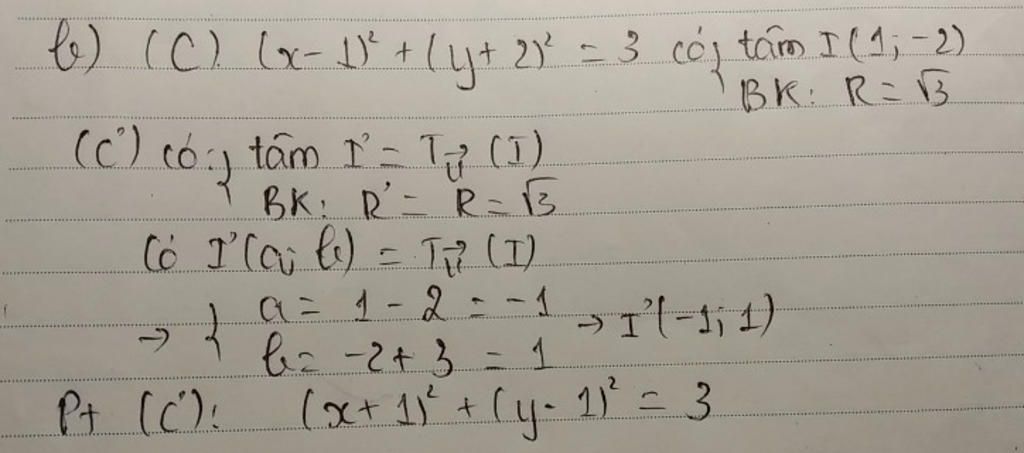 b) (C) (x-1)² + (y+2)² = 3 có { tâm I(1; -2)
BK: R = √3
(C') có: { tâm I' = T_v⃗ (I)
BK: R' = R = √3
Có I'(a; b) = T_v⃗ (I)
→ { a = 1 - 2 = -1
b = -2 + 3 = 1 → I'(-1; 1)
Pt (C'): (x+1)² + (y-1)² = 3